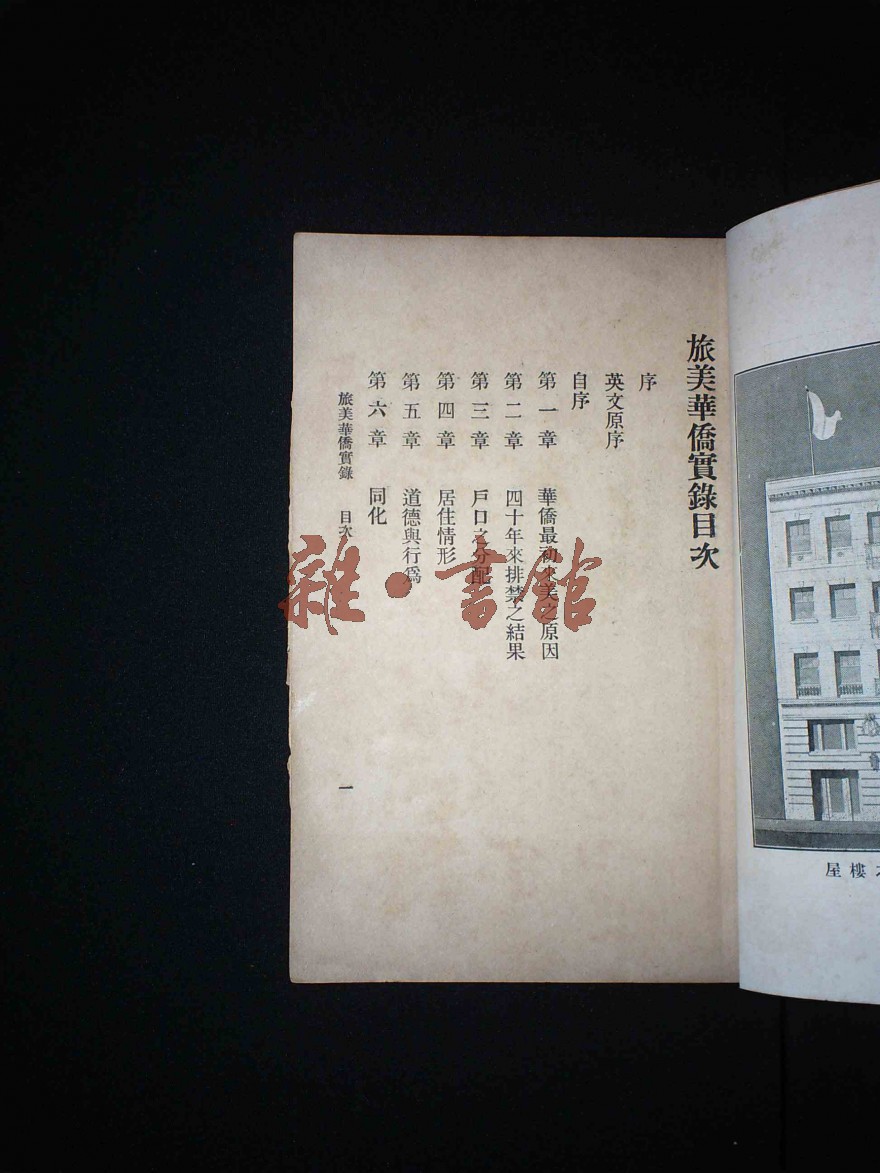 旅美華僑實錄目次
序
英文原序
自序
第一章 華僑最初來美之原因
第二章 四十年來排禁之結果
第三章 戶口之分配
第四章 居住情形
第五章 道德與行爲
第六章 同化
旅美華僑實錄 目次
一
雜·書館
屋樓